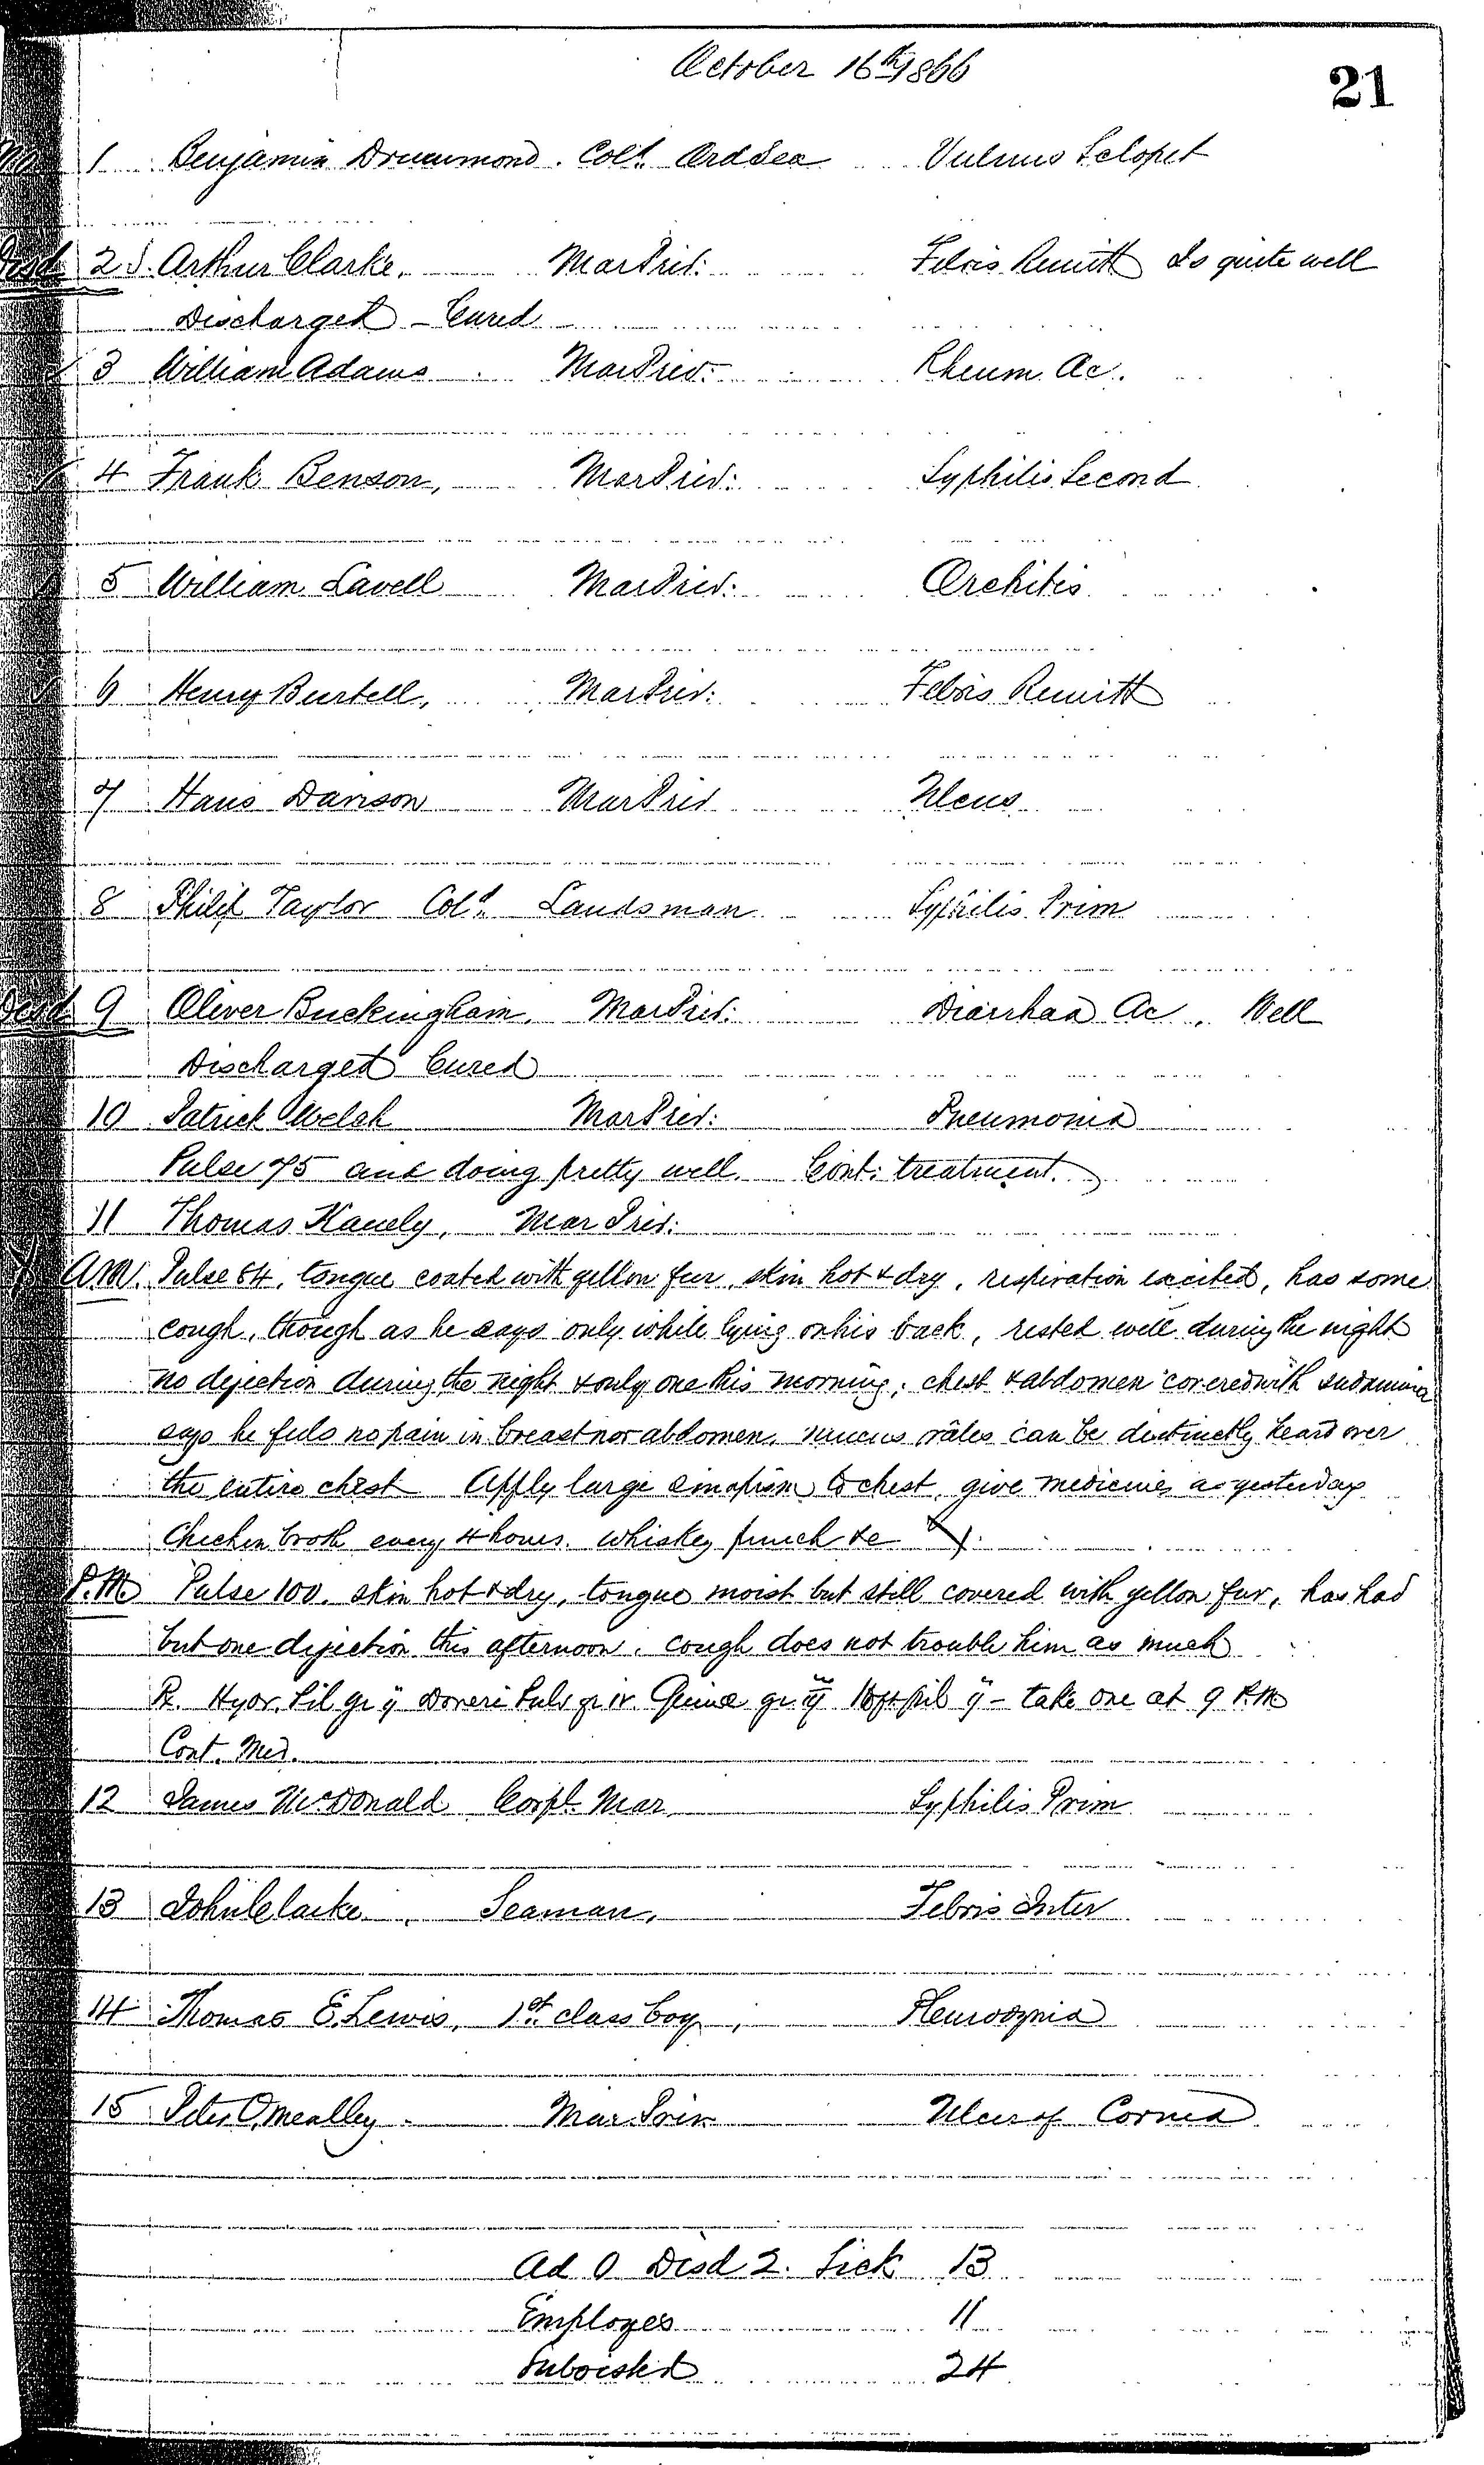 October 16th 1866
21
No 1 Benjamin Drummond. Cold. Ord Sea Vulnus Sclopet
Disd 2 Arthur Clarke, Mar Priv: Febris Remitt Is quite well
Discharged - Cured
3 William Adams Mar Priv: Rheum Ac.
4 Frank Benson, Mar Priv: Syphilis Second
5 William Lavell Mar Priv: Orchitis
6 Henry Burtell, Mar Priv: Febris Remitt
7 Hans Davison Mar Priv Ulcus
8 Philip Taylor Cold. Landsman Syphilis Prim
Disd 9 Oliver Buckingham, Mar Priv: Diarrhaa Ac. Well
Discharged Cured
10 Patrick Welch Mar Priv: Pneumonia
Pulse 75 and doing pretty well. Cont: treatment.
11 Thomas Kanely, Mar Priv:
A.M. Pulse 84, tongue coated with yellow fur, skin hot & dry, respiration excited, has some
cough, though as he says only while lying on his back, rested well during the night
no dejection during the night & only one this morning; chest & abdomen covered with sudamina
says he feels no pain in breast nor abdomen, mucus râles can be distinctly heard over
the entire chest Apply large sinapism to chest, give medicines as yesterday
Chicken broth every 4 hours. whiskey punch &c
P.M. Pulse 100. skin hot & dry, tongue moist but still covered with yellow fur, has had
but one dejection this afternoon. cough does not trouble him as much
Rx. Hydr. Pil gr ij Doveri Pulv gr iv Quiniæ gr iij ft pil ij - take one at 9 P.M.
Cont. Med.
12 James McDonald Corpl. Mar. Syphilis Prim
13 John Clarke. Seaman, Febris Inter
14 Thomas E. Lewis, 1st class boy, Pleurodynia
15 Peter O,Mealley. Mar Priv Ulcer of Cornea
Ad 0 Disd 2. Sick 13
Employes 11
Subsisted 24